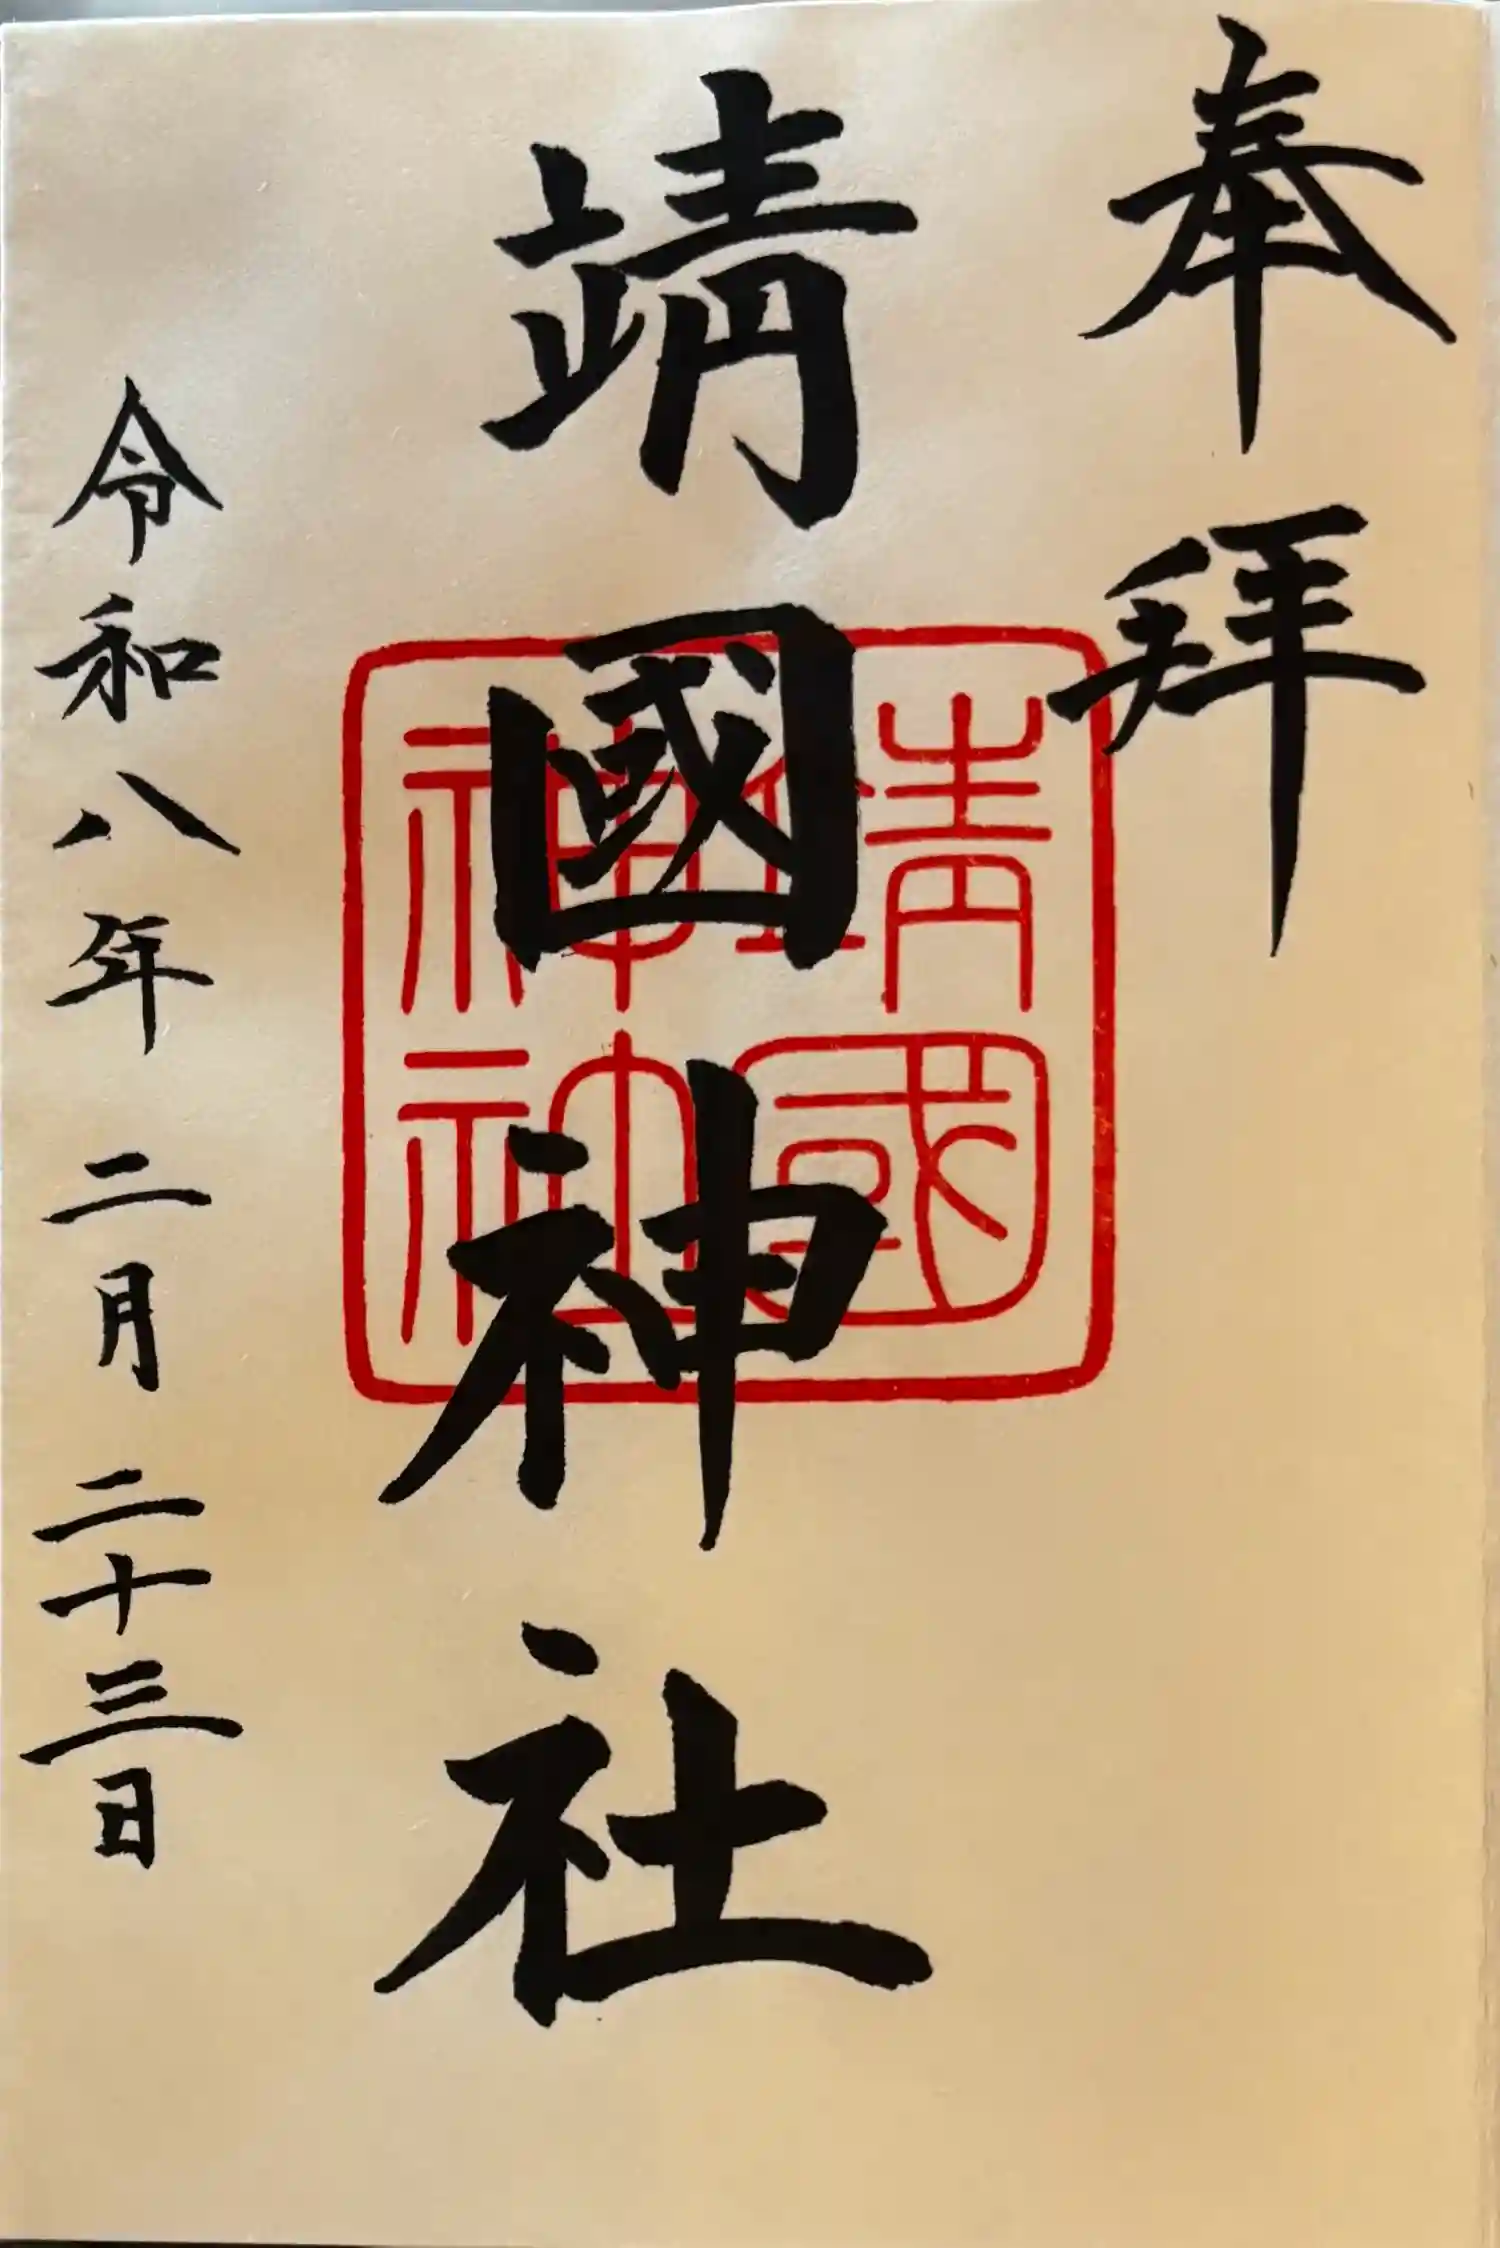 奉拜
靖國神社
靖國
神社
令和八年 二月 二十三日